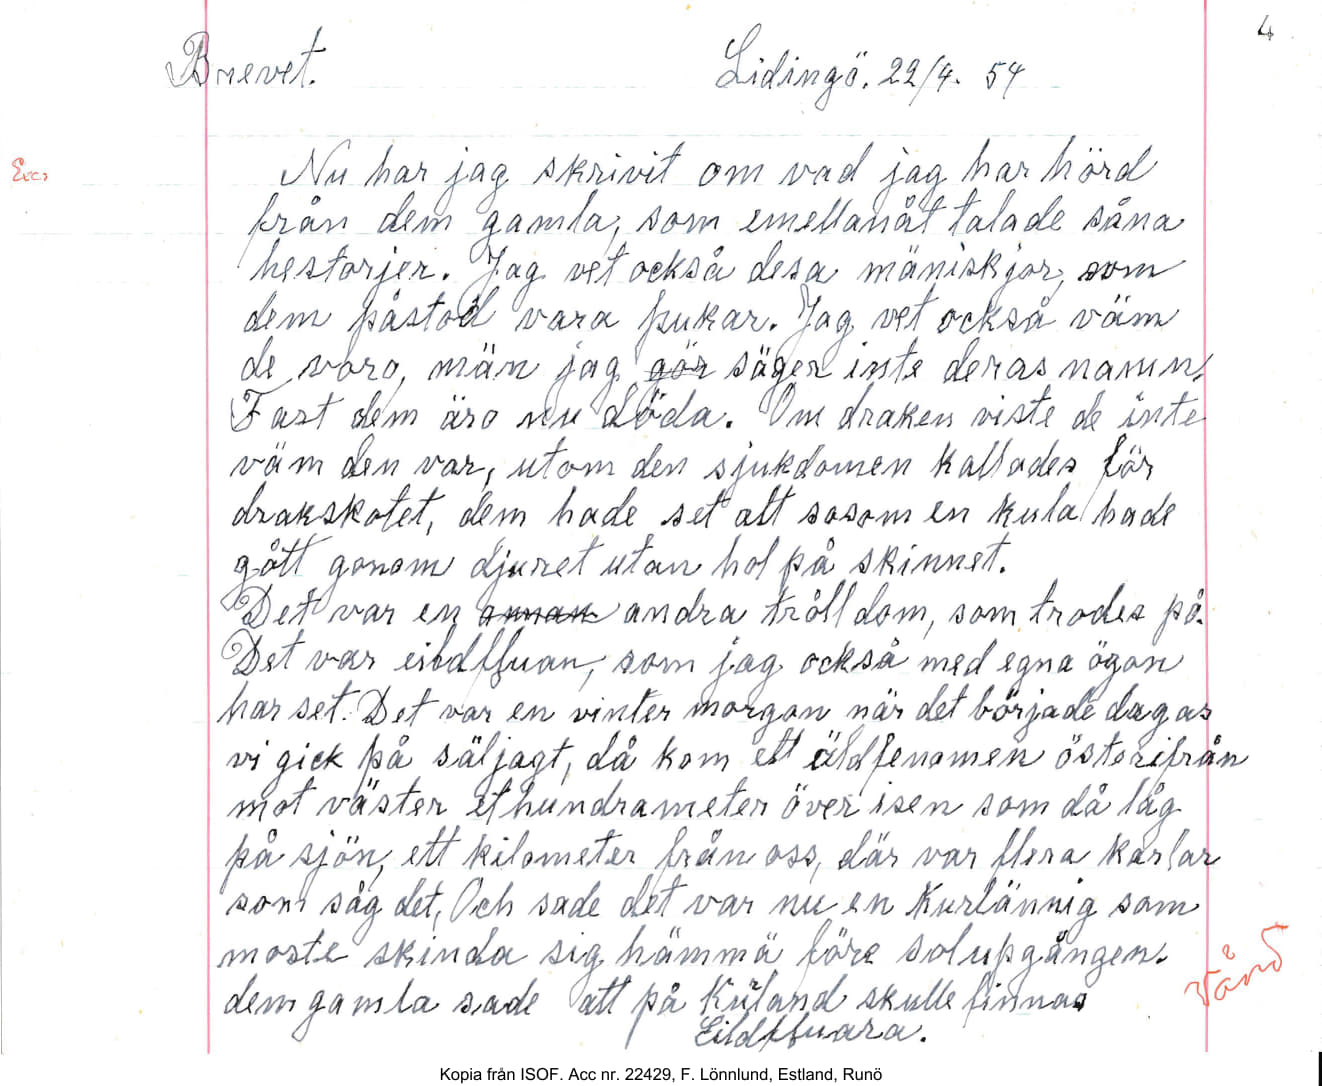 4
Brevet. Lidingö. 22/4. 54
Exc,
Nu har jag skrivit om vad jag har hörd
från dem gamla, som emellanåt talade såna
hestorjer. Jag vet också desa mäniskjor, som
dem påstod vara pukar. Jag vet också väm
de voro, män jag gör säger inte deras namn,
Fast dem äro nu döda. Om draken viste de inte
väm den var, utom den sjukdomen kallades för
drakskotet, dem hade set att sosom en kula hade
gått genom djuret utan hol på skinnet.
Det var en annan andra trålldom, som trodes på.
Det var som jag också med egna ögon
har set. Det var en vinter morgon när det började dagas
vi gick på säljagt, då kom ett äldfenomen österifrån
mot väster ethundrameter över isen som då låg
på sjön, ett kilometer från oss, där var flera karlar
som såg det, Och sade det var nu en Kurlännig som
moste skinda sig hämmä före solupgången.
dem gamla sade att på Kurland skulle finnas
Kopia från ISOF. Acc nr. 22429, F. Lönnlund, Estland, Runö